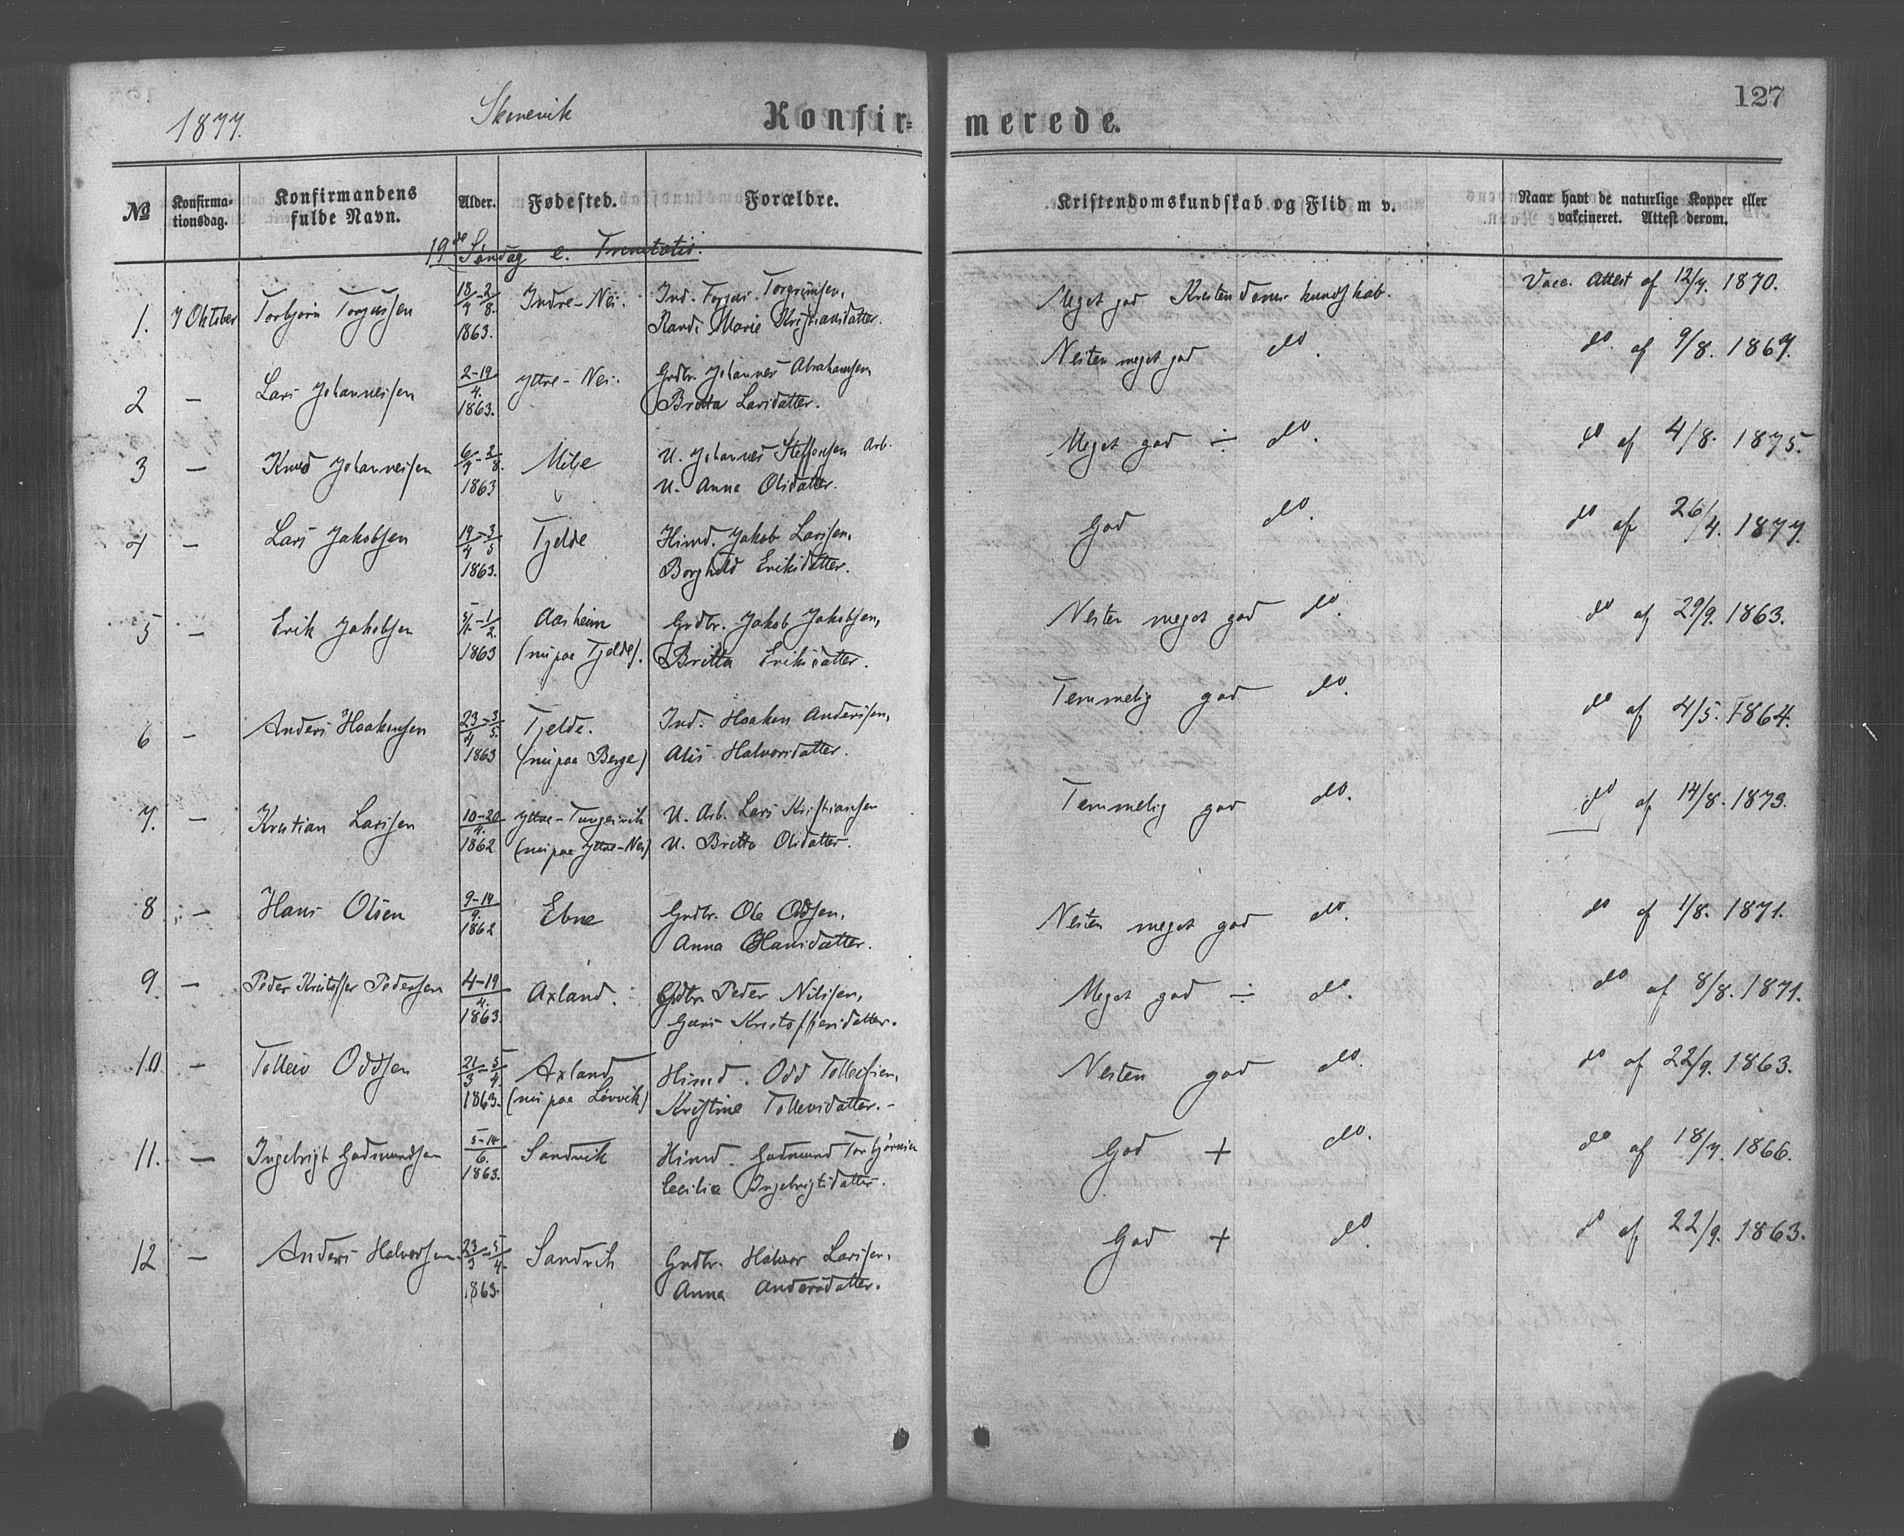 1877.
Skonevik
Konfirmerede.
127
№ Konfirmationsdag. Konfirmandens fulde Navn. Alder. Fødested. Forældre. Kristendomskundskab og Flid m v. Naar havt de naturlige Kopper eller vakcineret. Attest derom.
19de Søndag e. Trinitatis.
1. 7 Oktober Torbjørn Torgersen 18/7 - 2/8. 1863. Indre-Nes. Ind. Torger Torgrimsen, Meget god Kristendomskundskab. Vacc. Attest af 12/7. 1870.
Randi Marie Kristiansdatter.
2 — Lars Johannessen 2-19/4. 1863. Yttre-Nes. Grdbr. Johannes Abrahamsen Nesten meget god do. do. af 9/8. 1867.
Britta Larsdatter.
3 — Knud Johannessen 6/7 - 2/8. 1863 Milje U. Johannes Steffensen Arb. Meget god ÷ do. do af 4/8. 1875.
U. Anna Olsdatter.
4 — Lars Jakobsen 19/4 - 3/5 1863. Tjelde Himd. Jakob Larssen, God do. do af 26/4. 1877.
Borghild Eriksdatter.
5 — Erik Jakobsen 5/1 - 1/2. 1863 Aasheim Grdbr. Jakob Jakobsen, Nesten meget god do. do af 29/9. 1863.
(nu paa Tjelde). Britta Eriksdatter.
6 — Anders Haakensen 23/4 - 3/5. 1863 Tjelde. Ind. Haaken Andersen, Temmelig god do. do af 4/5. 1864.
(nu paa Berge) Alis Halvorsdatter.
7. — Kristian Larssen 10-20/4. 1862 Yttre-Tungesvik U. Arb. Lars Kristiansen Temmelig god do. do af 14/8. 1873.
(nu paa Yttre-Nes) U. Britta Olsdatter.
8 — Hans Olsen 9-14/9. 1862 Ebne Grdbr. Ole Oddsen, Nesten meget god do. do af 1/8. 1871.
Anna Hansdatter.
9 — Peder Kristoffer Pedersen 4-19/4. 1863. Axland. Grdbr. Peder Nilssen, Meget god ÷ do. do af 8/8. 1871.
Guri Kristoffersdatter.
10 — Tolleiv Oddsen 21/3 - 5/4 1863. Axland Himd. Odd Tolleivsen, Nesten god do. do af 22/9. 1863.
(nu paa Løvvik) Kristine Tollevsdatter.
11. — Ingebrigt Gudmundsen 5-14/6. 1863. Sandvik Himd. Gudmund Torbjørnsen God + do. do af 18/7. 1866.
Cecilia Ingebrigtsdatter.
12 — Anders Halvorsen 23/3 - 5/4. 1863. Sandvik Grdbr. Halvor Larssen, God + do. do af 22/9. 1863.
Anna Andersdatter.